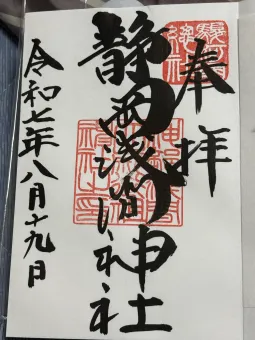 奉拝
静岡浅間神社
令和七年八月十九日